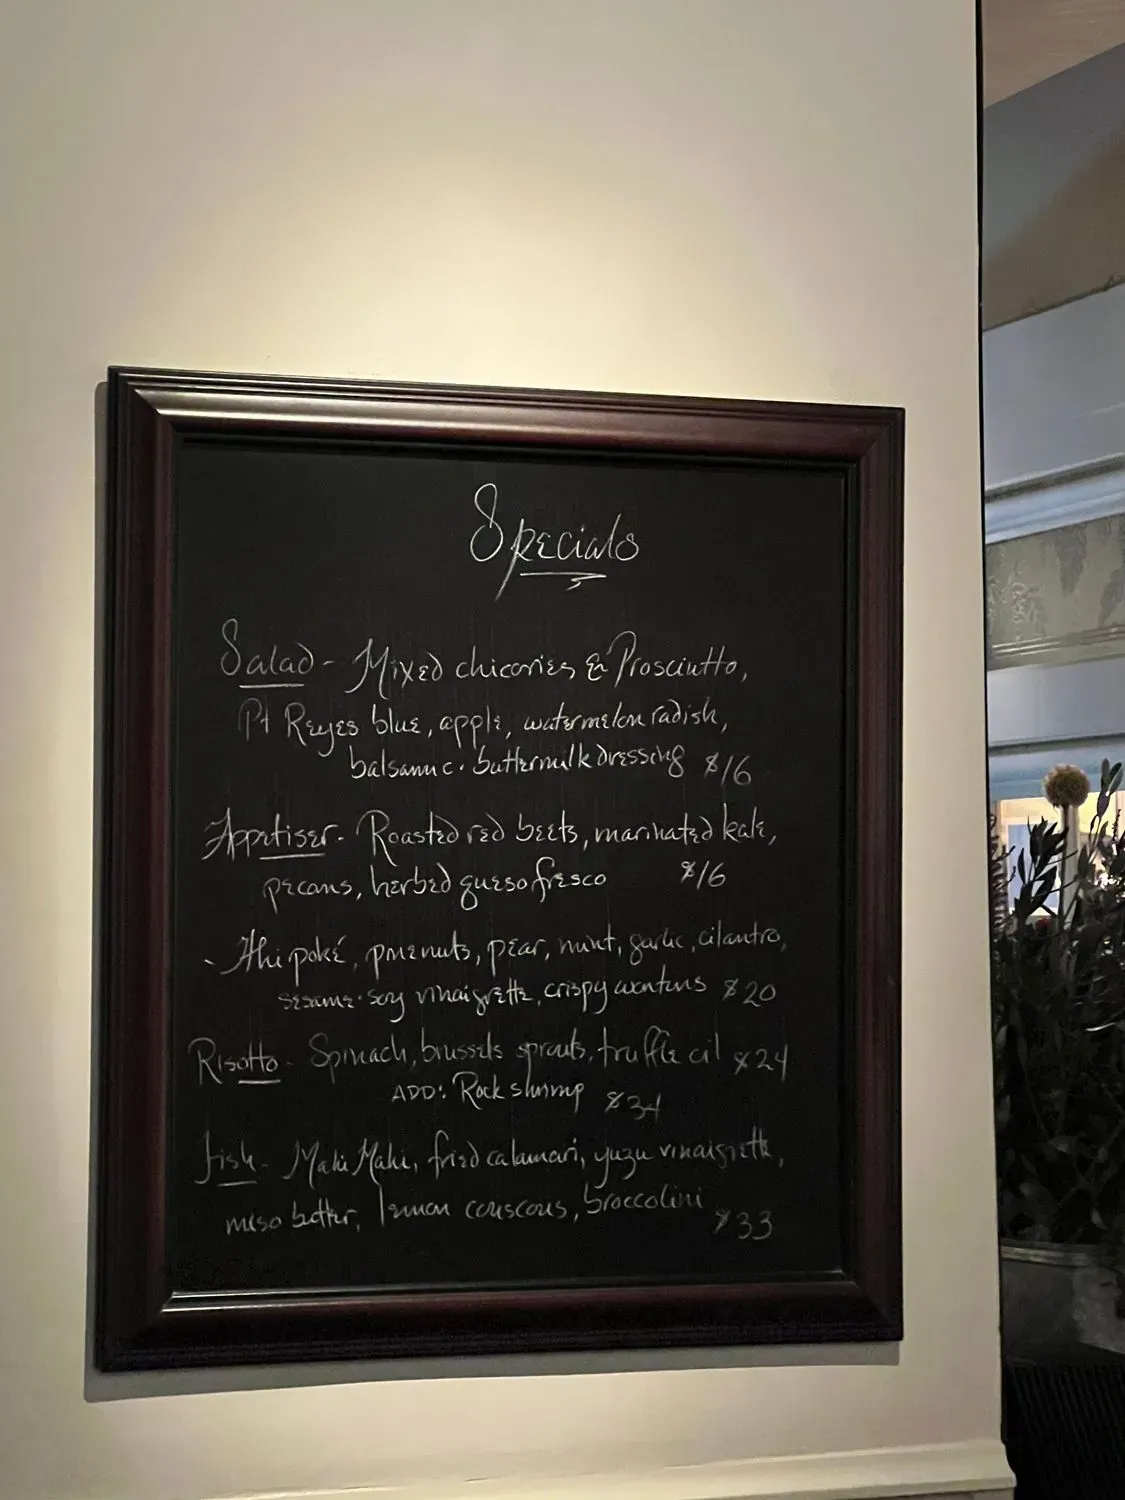 Specials
Salad - Mixed chicories & Prosciutto,
Pt Reyes blue, apple, watermelon radish,
balsamic. buttermilk dressing $16
Appetiser - Roasted red beets, marinated kale,
pecans, herbed queso fresco $16
- Ahi poké, pinenuts, pear, mint, garlic, cilantro,
sesame. soy vinaigrette, crispy wontons $20
Risotto - Spinach, brussels sprouts, truffle oil $24
ADD: Rock shrimp $34
Fish - Mahi Mahi, fried calamari, yuzu vinaigrette,
miso butter, lemon couscous, broccolini $33